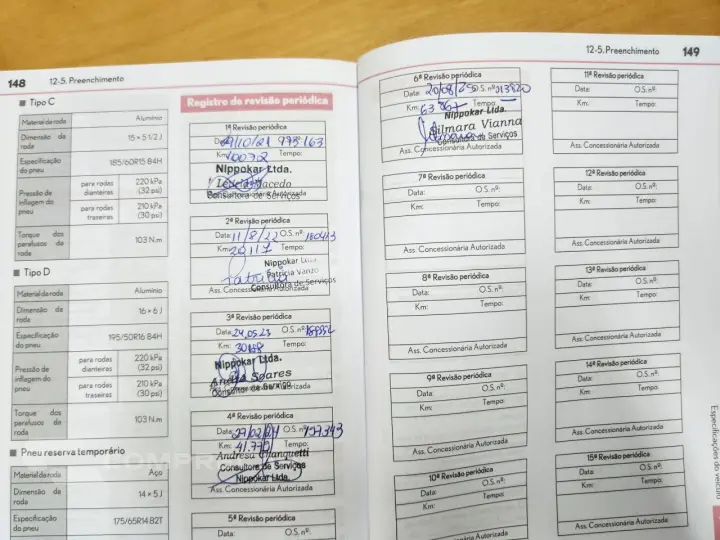 148 12-5. Preenchimento
■ Tipo C
Material da roda Alumínio
Dimensão da roda 15 × 5 1/2 J
Especificação do pneu 185/60R15 84H
Pressão de inflagem do pneu
para rodas dianteiras 220 kPa (32 psi)
para rodas traseiras 210 kPa (30 psi)
Torque dos parafusos de roda 103 N.m
■ Tipo D
Material da roda Alumínio
Dimensão da roda 16 × 6 J
Especificação do pneu 195/50R16 84H
Pressão de inflagem do pneu
para rodas dianteiras 220 kPa (32 psi)
para rodas traseiras 210 kPa (30 psi)
Torque dos parafusos de roda 103 N.m
■ Pneu reserva temporário
Material da roda Aço
Dimensão da roda 14 × 5 J
Especificação do pneu 175/65R14 82T
Registro de revisão periódica
1ª Revisão periódica
Data: 29/10/21
Km: Tempo:
Nippokar Ltda.
Consultora de Serviços
2ª Revisão periódica
Data: 11/8/22 O.S. nº:
Km: 20117 Tempo:
Nippokar
Patricia Vanzo
Consultora de Serviços
Ass. Concessionária Autorizada
3ª Revisão periódica
Data: 24.05.23 O.S. nº:
Km: Tempo:
Nippokar Ltda.
André Soares
Consultor de Serviço
4ª Revisão periódica
Data: 27/02/24
Km: 41.770 Tempo:
Andresa Gianquetti
Consultora de Serviços
Nippokar Ltda.
Ass. Concessionária Autorizada
5ª Revisão periódica
Data: O.S. nº:
12-5. Preenchimento 149
6ª Revisão periódica
Data: 20/08/25 O.S. nº:
Km: Tempo:
Nippokar Ltda.
Silmara Vianna
Consultora de Serviços
Ass. Concessionária Autorizada
7ª Revisão periódica
Data: O.S. nº:
Km: Tempo:
Ass. Concessionária Autorizada
8ª Revisão periódica
Data: O.S. nº:
Km: Tempo:
Ass. Concessionária Autorizada
9ª Revisão periódica
Data: O.S. nº:
Km: Tempo:
Ass. Concessionária Autorizada
10ª Revisão periódica
Data: O.S. nº:
Km: Tempo:
Ass. Concessionária Autorizada
11ª Revisão periódica
Data: O.S. nº:
Km: Tempo:
Ass. Concessionária Autorizada
12ª Revisão periódica
Data: O.S. nº:
Km: Tempo:
Ass. Concessionária Autorizada
13ª Revisão periódica
Data: O.S. nº:
Km: Tempo:
Ass. Concessionária Autorizada
14ª Revisão periódica
Data: O.S. nº:
Km: Tempo:
Ass. Concessionária Autorizada
15ª Revisão periódica
Data: O.S. nº:
Km: Tempo:
Ass. Concessionária Autorizada
Especificações do veículo